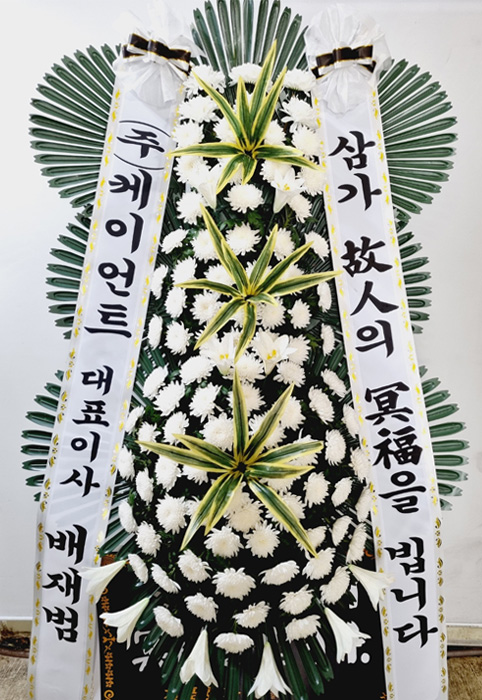 삼가 故人의 冥福을 빕니다
(주)케이언트 대표이사 배재범